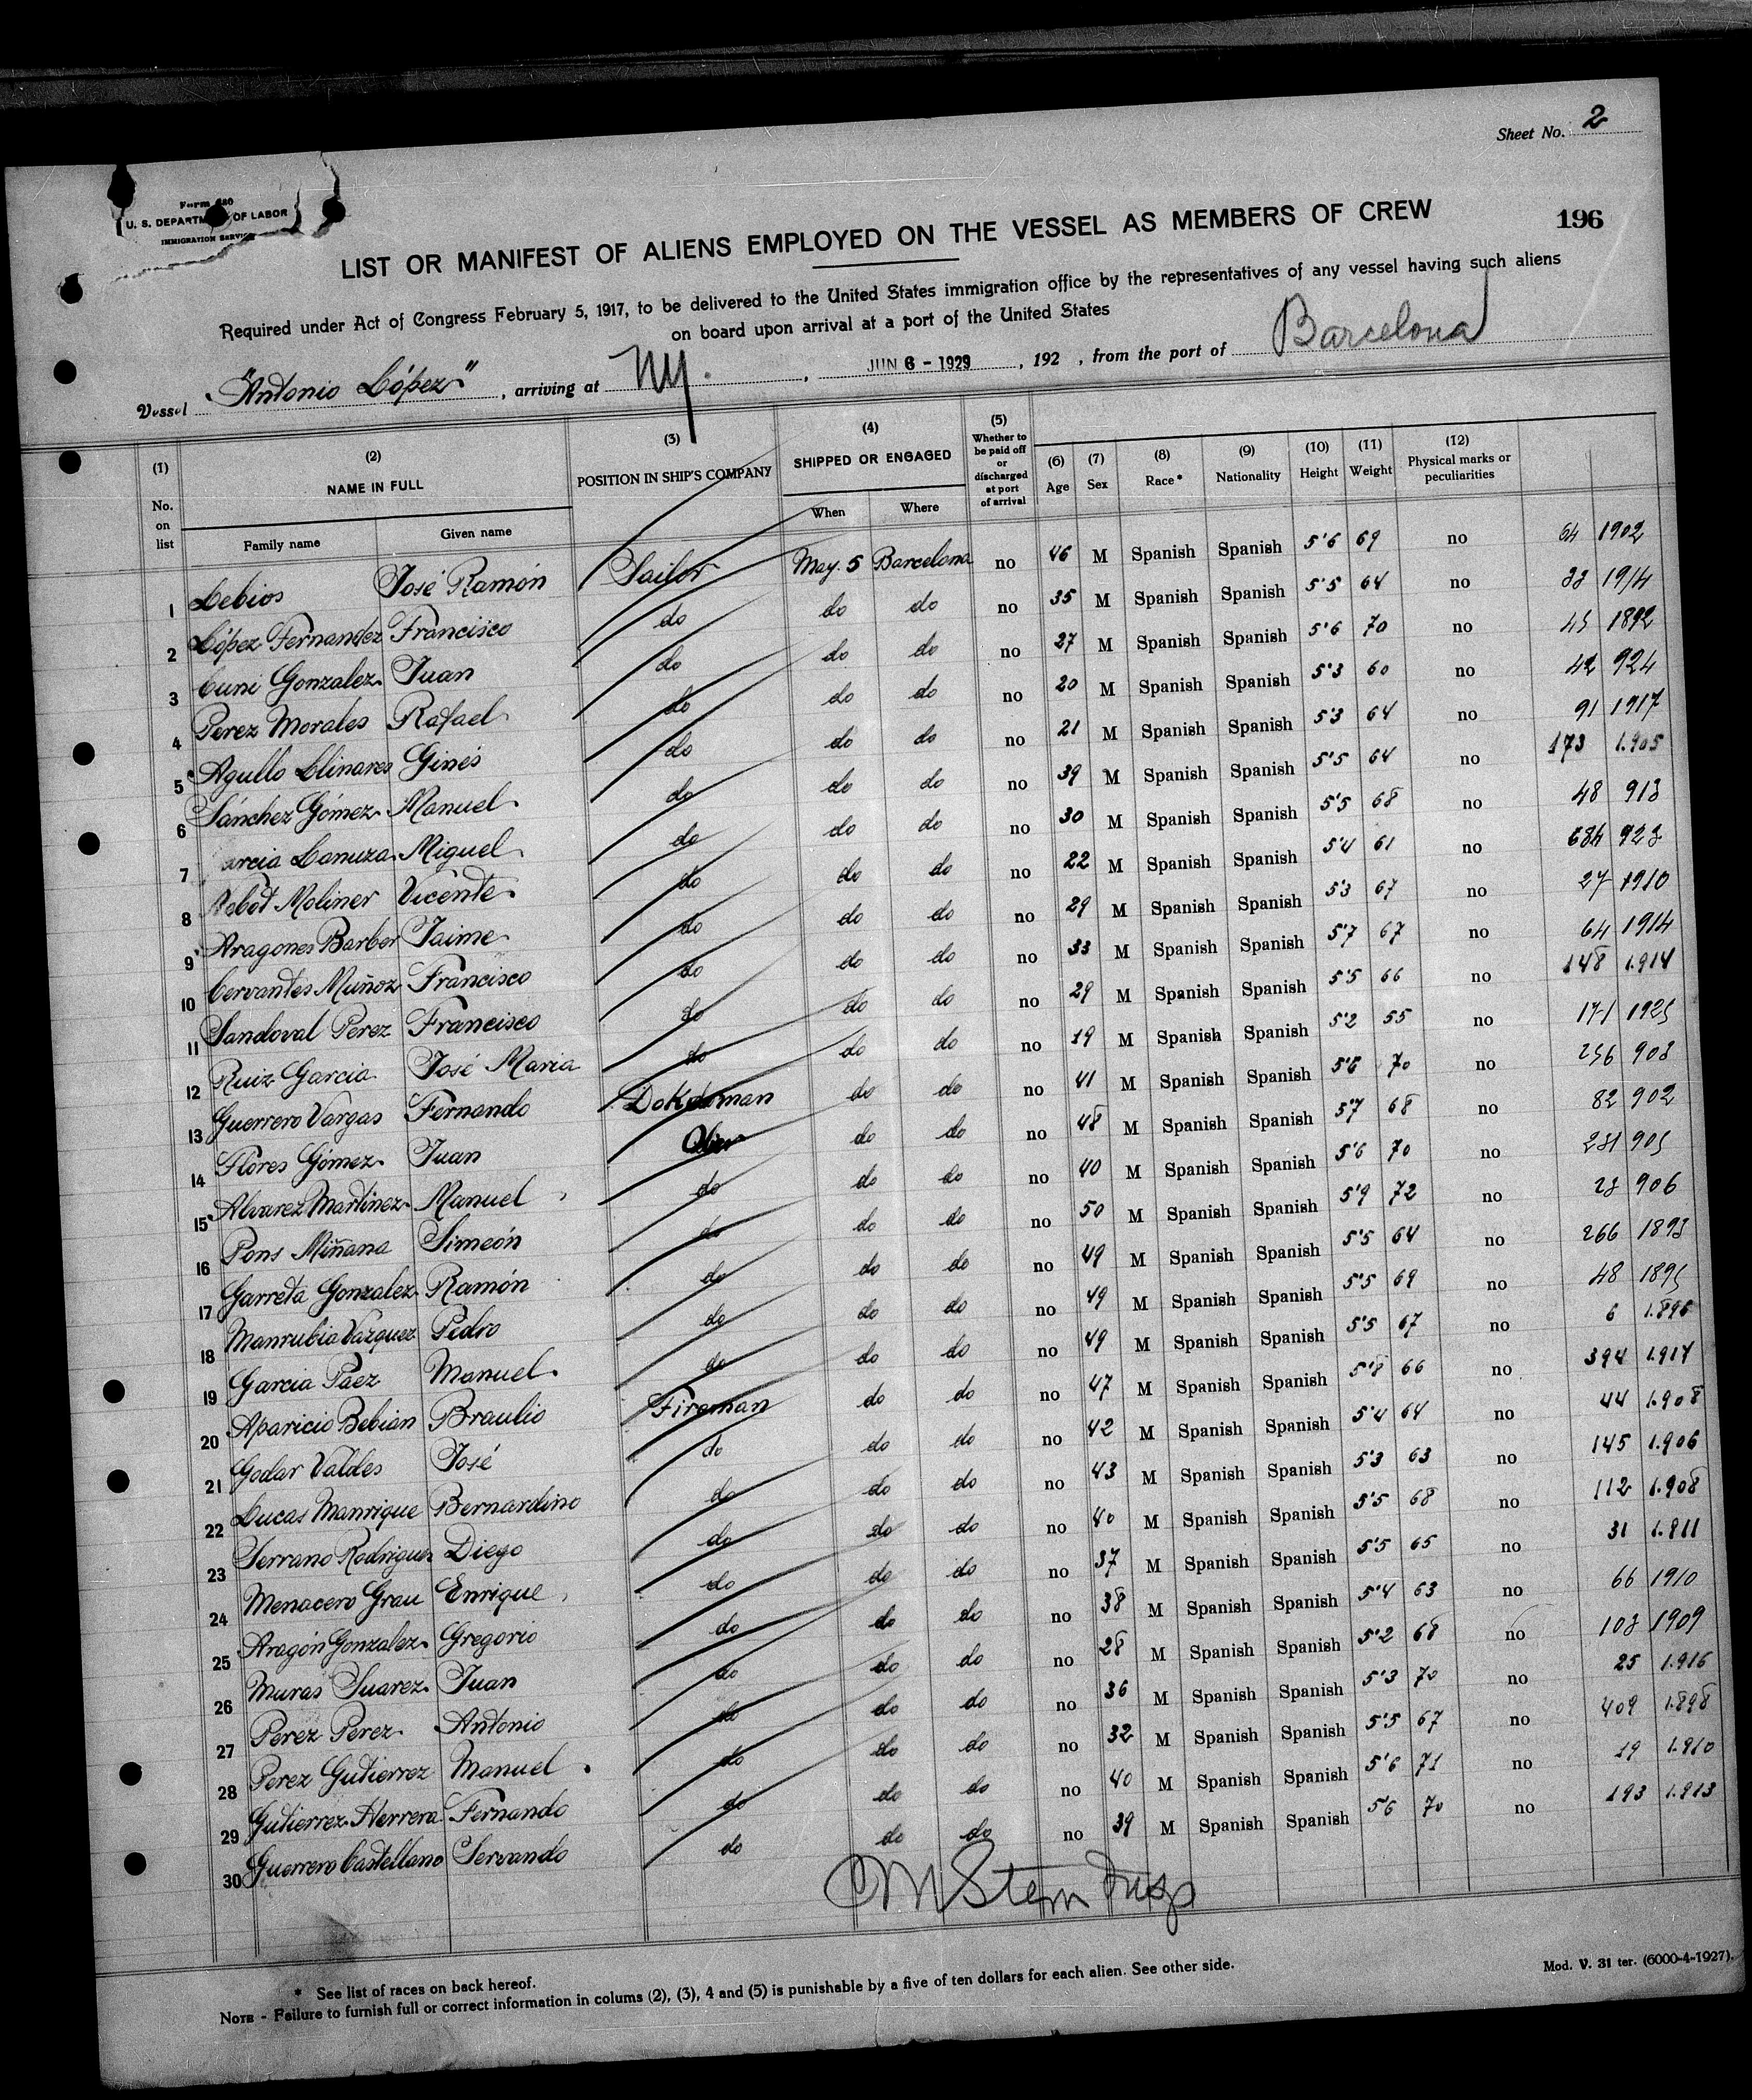 Sheet No. 2
Form 680
U. S. DEPARTMENT OF LABOR
IMMIGRATION SERVICE
196
LIST OR MANIFEST OF ALIENS EMPLOYED ON THE VESSEL AS MEMBERS OF CREW
Required under Act of Congress February 5, 1917, to be delivered to the United States immigration office by the representatives of any vessel having such aliens
on board upon arrival at a port of the United States
Vessel "Antonio López", arriving at NY. , JUN 6 - 1929 , 192 , from the port of Barcelona
(1) No. on list (2) NAME IN FULL Family name Given name (3) POSITION IN SHIP'S COMPANY (4) SHIPPED OR ENGAGED When Where (5) Whether to be paid off or discharged at port of arrival (6) Age (7) Sex (8) Race* (9) Nationality (10) Height (11) Weight (12) Physical marks or peculiarities
1 Lebios José Ramón Sailor May. 5 Barcelona no 46 M Spanish Spanish 5'6 69 no 64 1902
2 López Fernandez Francisco do do do no 35 M Spanish Spanish 5'5 64 no 33 1914
3 Cuni Gonzalez Juan do do do no 27 M Spanish Spanish 5'6 70 no 45 1892
4 Perez Morales Rafael do do do no 20 M Spanish Spanish 5'3 60 no 42 924
5 Agullo Llinares Ginés do do do no 21 M Spanish Spanish 5'3 64 no 91 1917
6 Sánchez Gómez Manuel do do do no 39 M Spanish Spanish 5'5 64 no 173 1.905
7 arcia Lanuza Miguel do do do no 30 M Spanish Spanish 5'5 68 no 48 913
8 Nebot Moliner Vicente do do do no 22 M Spanish Spanish 5'4 61 no 684 923
9 Aragones Barber Jaime do do do no 29 M Spanish Spanish 5'3 67 no 27 1910
10 Cervantes Muñoz Francisco do do do no 33 M Spanish Spanish 5'7 67 no 64 1914
11 Sandoval Perez Francisco do do do no 29 M Spanish Spanish 5'5 66 no 148 1.914
12 Ruiz Garcia José Maria do do do no 19 M Spanish Spanish 5'2 55 no 171 1925
13 Guerrero Vargas Fernando do do no 41 M Spanish Spanish 5'6 70 no 256 903
14 Flores Gómez Juan Oiler do do no 48 M Spanish Spanish 5'7 68 no 82 902
15 Alvarez Martinez Manuel do do do no 40 M Spanish Spanish 5'6 70 no 281 905
16 Pons Miñana Simeón do do do no 50 M Spanish Spanish 5'9 72 no 23 906
17 Garreta Gonzalez Ramón do do do no 49 M Spanish Spanish 5'5 64 no 266 1893
18 Manrubia Vazquez Pedro do do do no 49 M Spanish Spanish 5'5 69 no 48 1895
19 Garcia Paez Manuel do do do no 49 M Spanish Spanish 5'5 67 no 6 1.896
20 Aparicio Bebian Braulio Fireman do do no 47 M Spanish Spanish 5'8 66 no 394 1.917
21 Godar Valdes José do do do no 42 M Spanish Spanish 5'4 64 no 44 1.908
22 Lucas Manrique Bernardino do do do no 43 M Spanish Spanish 5'3 63 no 145 1.906
23 Serrano Rodriguez Diego do do do no 40 M Spanish Spanish 5'5 68 no 112 1.908
24 Menacero Grau Enrique do do do no 37 M Spanish Spanish 5'5 65 no 31 1.911
25 Aragón Gonzalez Gregorio do do do no 38 M Spanish Spanish 5'4 63 no 66 1910
26 Muras Suarez Juan do do do no 28 M Spanish Spanish 5'2 68 no 103 1909
27 Perez Perez Antonio do do do no 36 M Spanish Spanish 5'3 70 no 25 1.916
28 Perez Gutierrez Manuel do do do no 32 M Spanish Spanish 5'5 67 no 409 1.898
29 Gutierrez Herrera Fernando do do do no 40 M Spanish Spanish 5'6 71 no 19 1.910
30 Guerrero Castellano Servando do do do no 39 M Spanish Spanish 5'6 70 no 193 1.913
CM Stern Insp
* See list of races on back hereof.
NOTE - Failure to furnish full or correct information in colums (2), (3), 4 and (5) is punishable by a five of ten dollars for each alien. See other side.
Mod. V. 31 ter. (6000-4-1927).